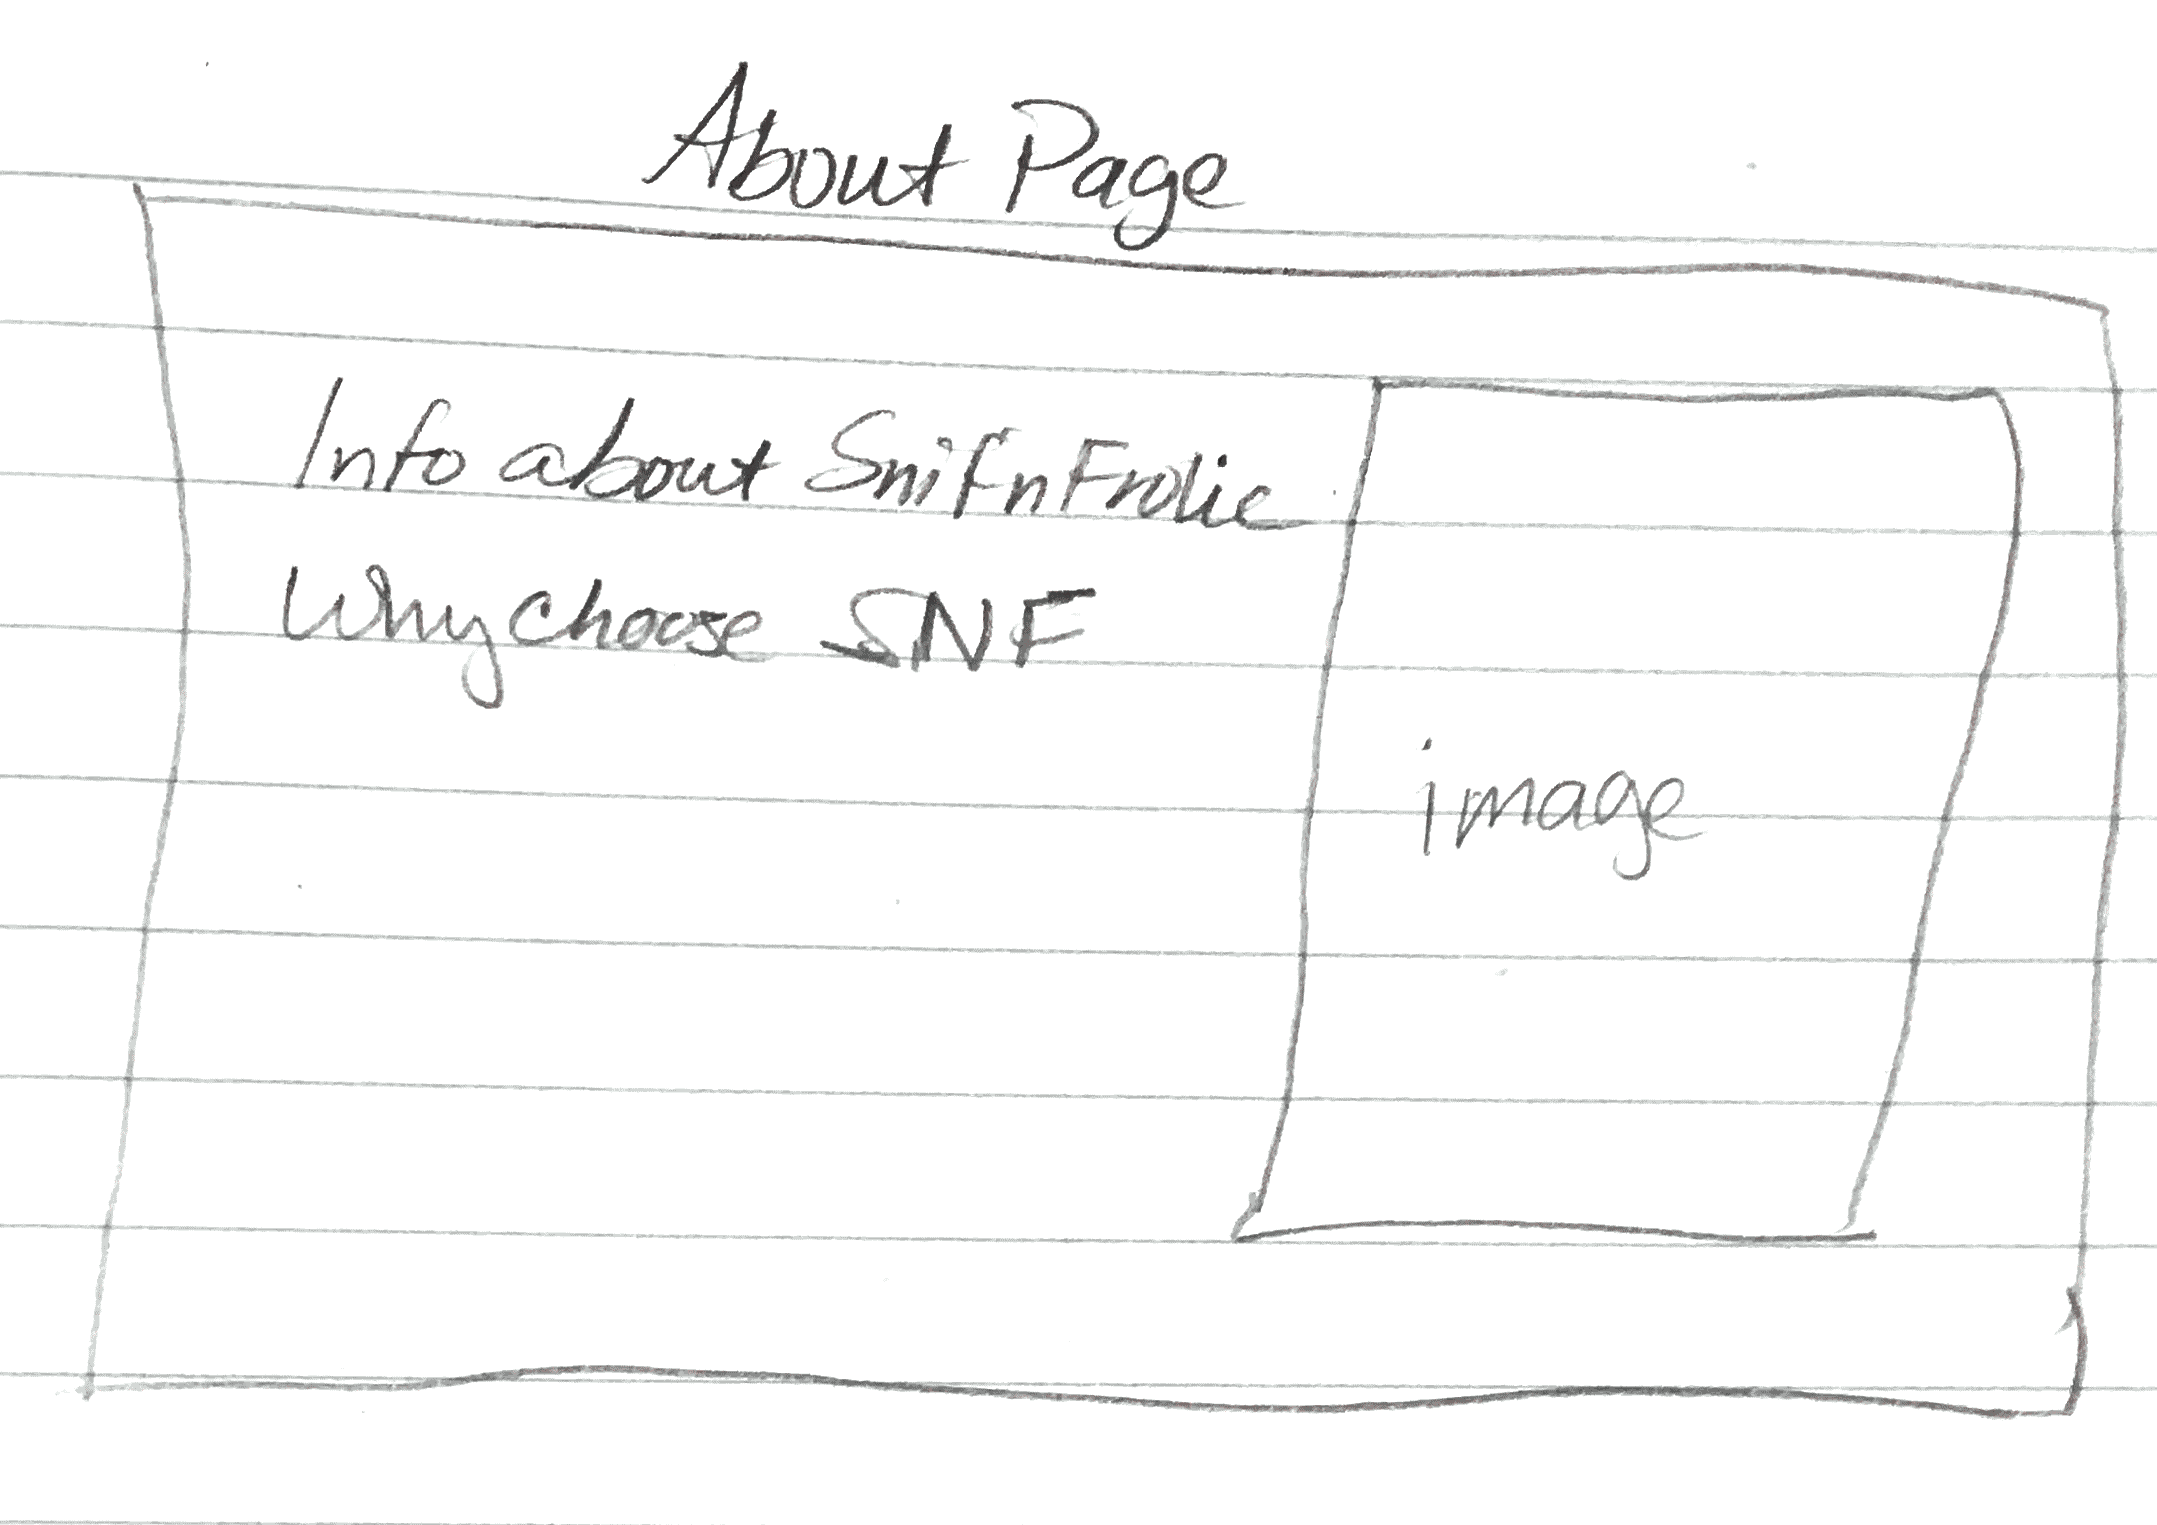 About Page
Info about SnifnFrolic
Why choose SNF
image